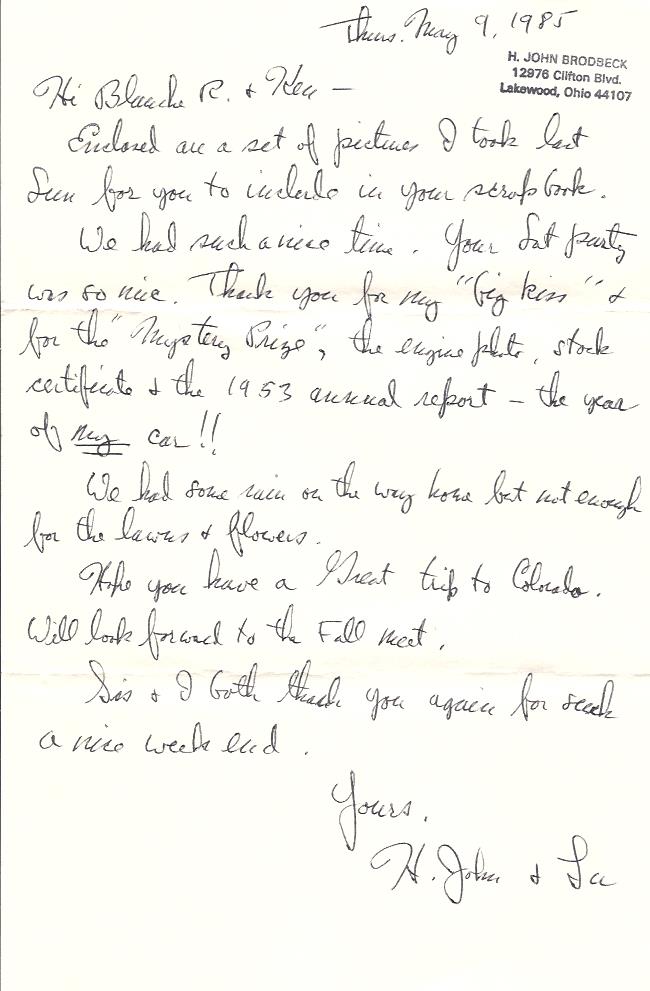 Thurs. May 9, 1985
H. JOHN BRODBECK
12976 Clifton Blvd.
Lakewood, Ohio 44107
Hi Blanche R. & Ken —
Enclosed are a set of pictures I took last
Sun for you to include in your scrapbook.
We had such a nice time. Your Sat party
was so nice. Thank you for my "big kiss" &
for the "Mystery Prize", the engine photo, stock
certificate & the 1953 annual report – the year
of my car!!
We had some rain on the way home but not enough
for the lawns & flowers.
Hope you have a Great trip to Colorado.
Will look forward to the Fall meet.
Sis & I both thank you again for such
a nice week end.
Yours,
H. John &